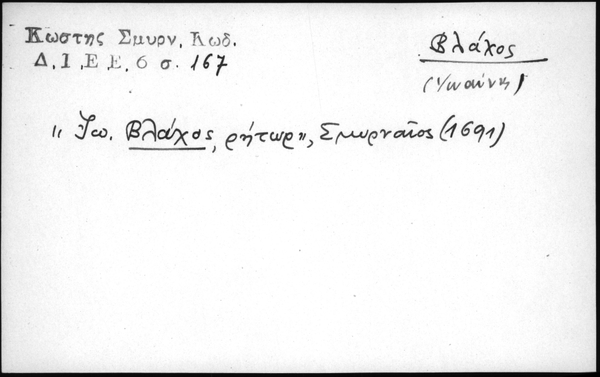 Κωστης Σμυρν, Κωδ.
Δ, Ι ,Ε Ε, 6 σ. 167
Βλάχος
(Ἰωαίννης)
" Ἰω. Βλάχος, ρήτωρ", Σμυρναῖος (1691)